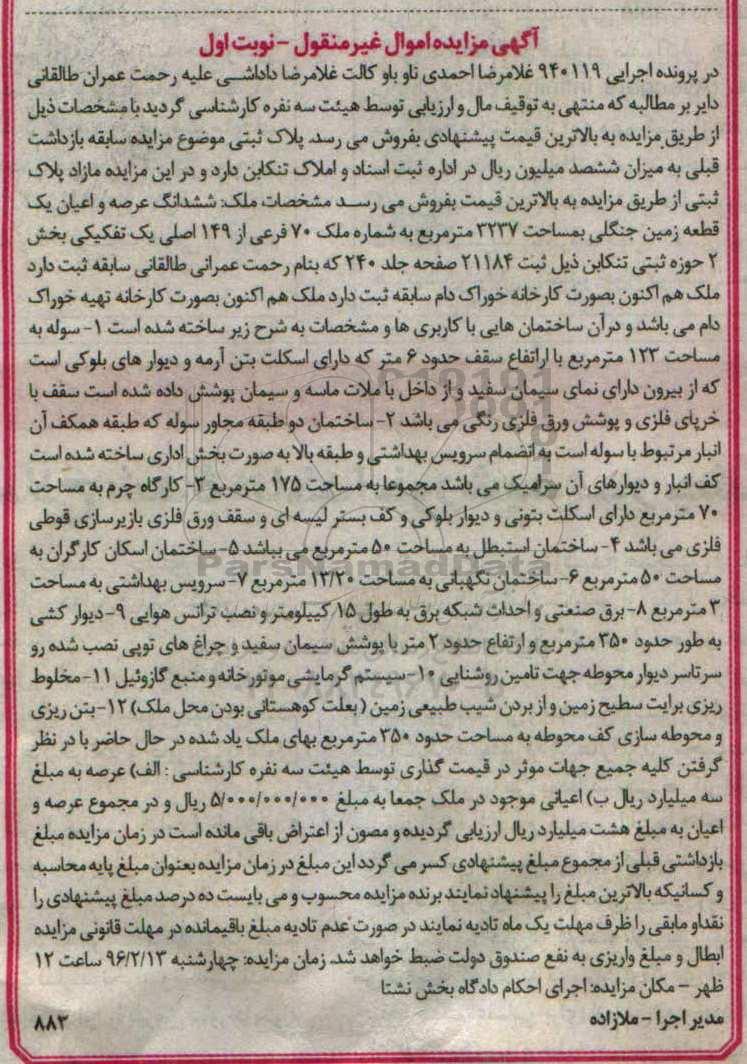 آگهی مزایده اموال غیر منقول - نوبت اول
در پرونده اجرایی ۹۴۰۱۱۹ غلامرضا احمدی ناو باو کالت غلامرضا داداشی علیه رحمت عمران طالقانی
دایر بر مطالبه که منتهی به توقیف مال و ارزیابی توسط هیئت سه نفره کارشناسی گردید با مشخصات ذیل
از طریق مزایده به بالاترین قیمت پیشنهادی بفروش می رسد. پلاک ثبتی موضوع مزایده سابقه بازداشت
قبلی به میزان ششصد میلیون ریال در اداره ثبت اسناد و املاک تنکابن دارد و در این مزایده مازاد پلاک
ثبتی از طریق مزایده به بالاترین قیمت بفروش می رسد مشخصات ملک: ششدانگ عرصه و اعیان یک
قطعه زمین جنگلی بمساحت ۳۲۳۷ مترمربع به شماره ملک ۷۰ فرعی از ۱۴۹ اصلی یک تفکیکی بخش
۲ حوزه ثبتی تنکابن ذیل ثبت ۲۱۱۸۴ صفحه جلد ۲۴۰ که بنام رحمت عمرانی طالقانی سابقه ثبت دارد
ملک هم اکنون بصورت کارخانه خوراک دام سابقه ثبت دارد ملک هم اکنون بصورت کارخانه تهیه خوراک
دام می باشد و درآن ساختمان هایی با کاربری ها و مشخصات به شرح زیر ساخته شده است ۱- سوله به
مساحت ۱۲۳ مترمربع با اراتفاع سقف حدود ۶ متر که دارای اسکلت بتن آرمه و دیوار های بلوکی است
که از بیرون دارای نمای سیمان سفید و از داخل با ملات ماسه و سیمان پوشش داده شده است سقف با
خرپای فلزی و پوشش ورق فلزی رنگی می باشد ۲- ساختمان دو طبقه مجاور سوله که طبقه همکف آن
انبار مرتبوط با سوله است به انضمام سرویس بهداشتی و طبقه بالا به صورت بخش اداری ساخته شده است
کف انبار و دیوارهای آن سرامیک می باشد مجموعا به مساحت ۱۷۵ مترمربع ۳- کارگاه چرم به مساحت
۷۰ مترمربع دارای اسکلت بتونی و دیوار بلوکی و کف بستر لیسه ای و سقف ورق فلزی بازیرسازی قوطی
فلزی می باشد ۴- ساختمان استبطل به مساحت ۵۰ مترمربع می بیاشد ۵- ساختمان اسکان کارگران به
مساحت ۵۰ مترمربع ۶- ساختمان نگهبانی به مساحت ۱۲/۲۰ مترمربع ۷- سرویس بهداشتی به مساحت
۳ مترمربع ۸- برق صنعتی و احداث شبکه برق به طول ۱۵ کییلومتر و نصب ترانس هوایی ۹- دیوار کشی
به طور حدود ۳۵۰ مترمربع و ارتفاع حدود ۲ متر با پوشش سیمان سفید و چراغ های توپی نصب شده رو
سرتاسر دیوار محوطه جهت تامین روشنایی ۱۰- سیستم گرمایشی موتورخانه و منبع گازوئیل ۱۱- مخلوط
ریزی برایت سطیح زمین و از بردن شیب طبیعی زمین (بعلت کوهستانی بودن محل ملک) ۱۲- بتن ریزی
و محوطه سازی کف محوطه به مساحت حدود ۳۵۰ مترمربع بهای ملک یاد شده در حال حاضر با در نظر
گرفتن کلیه جمیع جهات موثر در قیمت گذاری توسط هیئت سه نفره کارشناسی : الف) عرصه به مبلغ
سه میلیارد ریال ب) اعیانی موجود در ملک جمعا به مبلغ ۵/۰۰۰/۰۰۰/۰۰۰ ریال و در مجموع عرصه و
اعیان به مبلغ هشت میلیارد ریال ارزیابی گردیده و مصون از اعتراض باقی مانده است در زمان مزایده مبلغ
بازداشتی قبلی از مجموع مبلغ پیشنهادی کسر می گردد این مبلغ در زمان مزایده بعنوان مبلغ پایه محاسبه
و کسانیکه بالاترین مبلغ را پیشنهاد نمایند برنده مزایده محسوب و می بایست ده درصد مبلغ پیشنهادی را
نقداو مابقی را ظرف مهلت یک ماه تادیه نمایند در صورت عدم تادیه مبلغ باقیمانده در مهلت قانونی مزایده
ابطال و مبلغ واریزی به نفع صندوق دولت ضبط خواهد شد. زمان مزایده: چهارشنبه ۹۶/۲/۱۳ ساعت ۱۲
ظهر - مکان مزایده: اجرای احکام دادگاه بخش نشتا
مدیر اجرا - ملازاده ۸۸۳
ParsNamadData